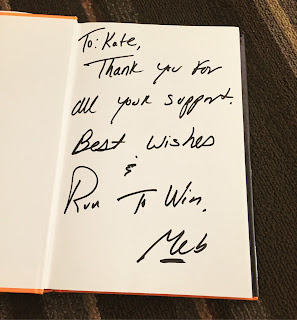 To: Kate,
Thank you for
all your support.
Best wishes
&
Run To Win.
Meb